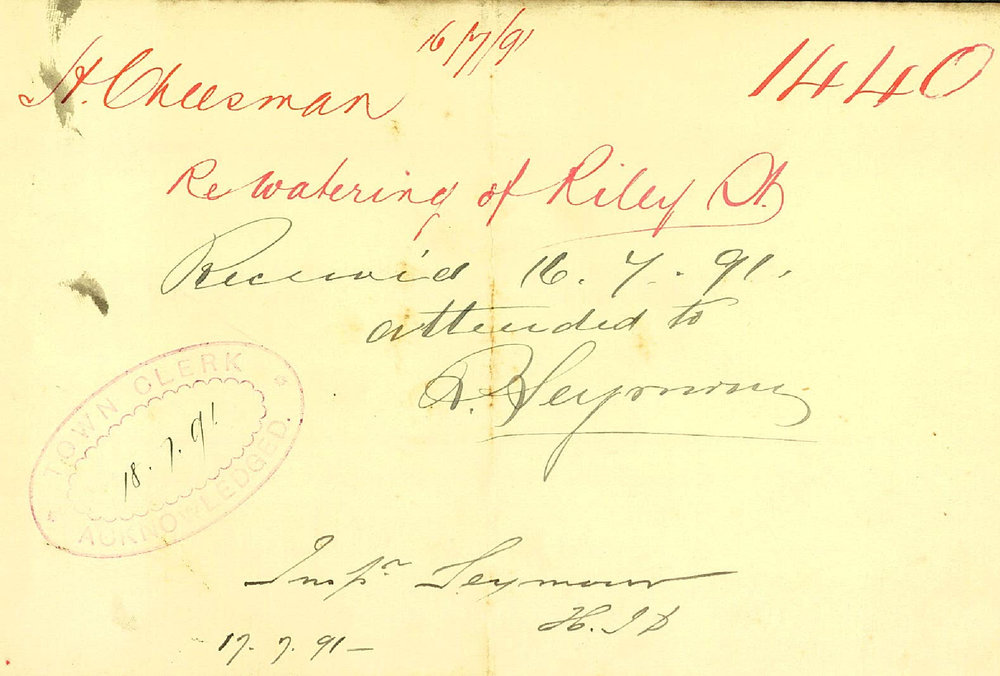 16/7/91
H. Cheesman
1440
Re Watering of Riley St.
Received 16.7.91.
attended to
R. Seymour
TOWN CLERK
18.7.91
ACKNOWLEDGED.
Inspr Seymour
H.I.D
17.7.91–